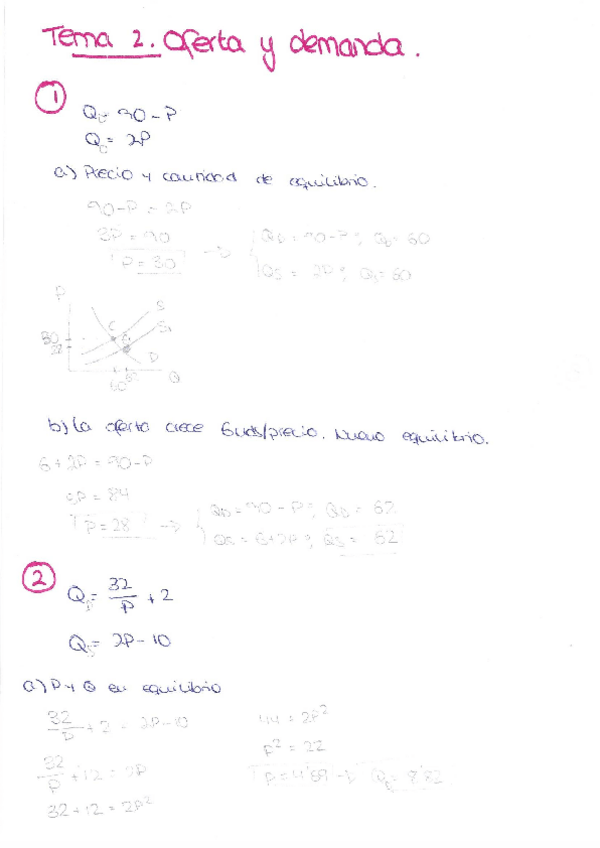 Tema 2. Oferta y demanda.
1
Q_D = 90 - P
Q_S = 2P
a) Precio y cantidad de equilibrio.
90 - P = 2P
3P = 90
P = 30 → Q_D = 90 - P ; Q_D = 60
Q_S = 2P ; Q_S = 60
P
S
S_1
C
30
28
D
60 62
Q
b) La oferta crece 6uds/precio. Nuevo equilibrio.
6 + 2P = 90 - P
3P = 84
P = 28 → Q_D = 90 - P ; Q_D = 62
Q_S = 6 + 2P ; Q_S = 62
2
Q_D = 32/P + 2
Q_S = 2P - 10
a) P y Q en equilibrio
32/P + 2 = 2P - 10
32/P + 12 = 2P
32 + 12 = 2P²
44 = 2P²
P² = 22
P = 4'69 →